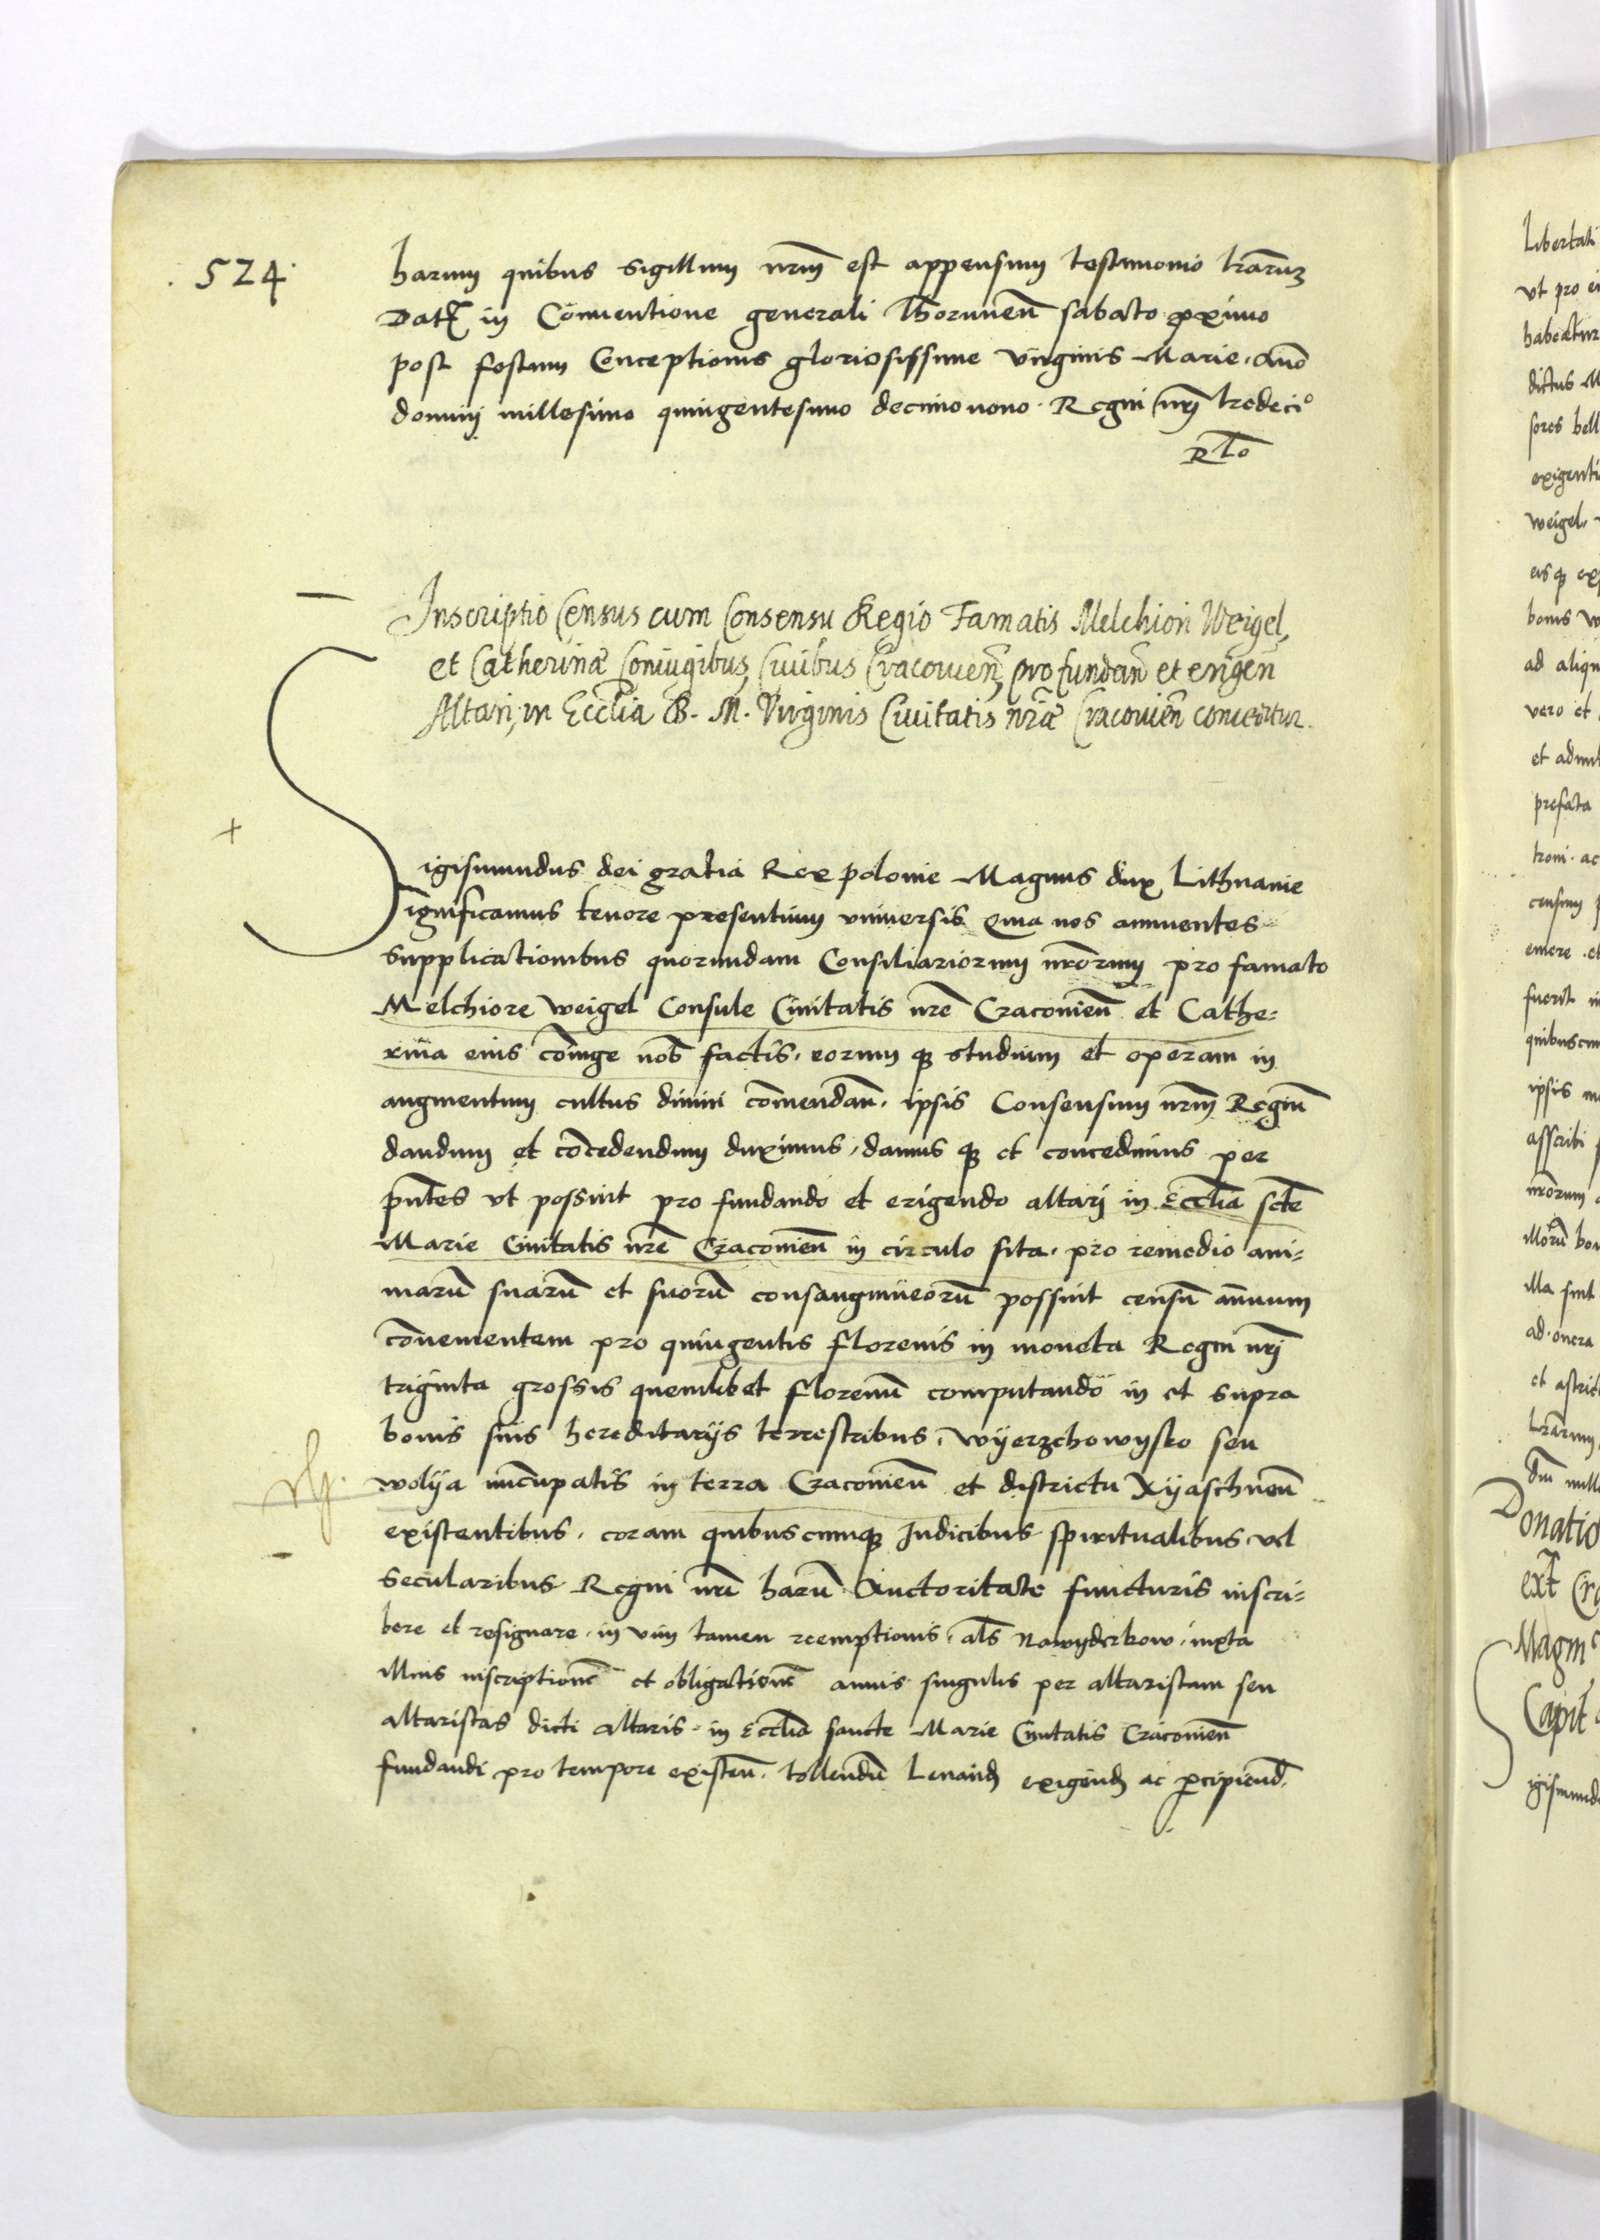 524.
harum quibus Sigillum nr̄m est appensum testimonio lr̄arum
Dat̄ in Conventione generali Thorunen̄ sabato proximo
post festum Conceptionis gloriosissime virginis Marie. Anno
domini millesimo quingentesimo decimonono. Regni nr̄i tredecio
Rlō
Inscriptio Census cum Consensu Regio Famatis Melchiori Weigel,
et Catherinæ Coniugibus, Ciuibus Cracouien̄, pro fundan̄ et erigen̄
Altari, in Eccl̄ia B. M. Virginis Ciuitatis nr̄æ Cracouien̄ conceditur.
Sigismundus dei gratia Rex polonie Magnus dux Lithuanie
Significamus tenore presentium vniversis Quia nos annuentes
supplicationibus quorundam Consiliariorum nr̄orum pro famato
Melchiore weigel Consule Ciuitatis nr̄e Cracouien̄ et Cathe=
rina eius cōiuge nob̄ factis. eorum q3 studium et operam in
augmentum cultus diuini cōmendan̄. ipsis Consensum nr̄m Regiūm
dandum et cōcedendum duximus, damus q3 et concedimus per
pn̄tes vt possint pro fundando et erigendo altari in Eccl̄ia sctē
Marie Ciuitatis nr̄e Cracouien̄ in circulo sita. pro remedio ani=
marū suarū et suorū consanguineorū possint censū annuum
cōuenientem pro quingentis florenis in moneta Regni nr̄i
triginta grossis quemlibet florenū computando in et supra
bonis suis hereditarijs terrestribus. wyerzchowysko seu
wolya nūcupatis in terra Cracouien̄ et districtu Xyaschnen̄
existentibus. coram quibuscumq3 Iudicibus spiritualibus vel
secularibus Regni nr̄i harū Auctoritate functuris inscri=
bere et resignare. in vim tamen reemptionis. als̄ Nawyderkow. iuxta
illius inscriptionē et obligationē annis singulis per altaristam seu
altaristas dicti altaris. in Eccl̄ia sancte Marie Ciuitatis Cracouien̄
fundandi pro tempore existen̄. tollendū leuand̄ exigend̄ ac p̄cipiend̄.